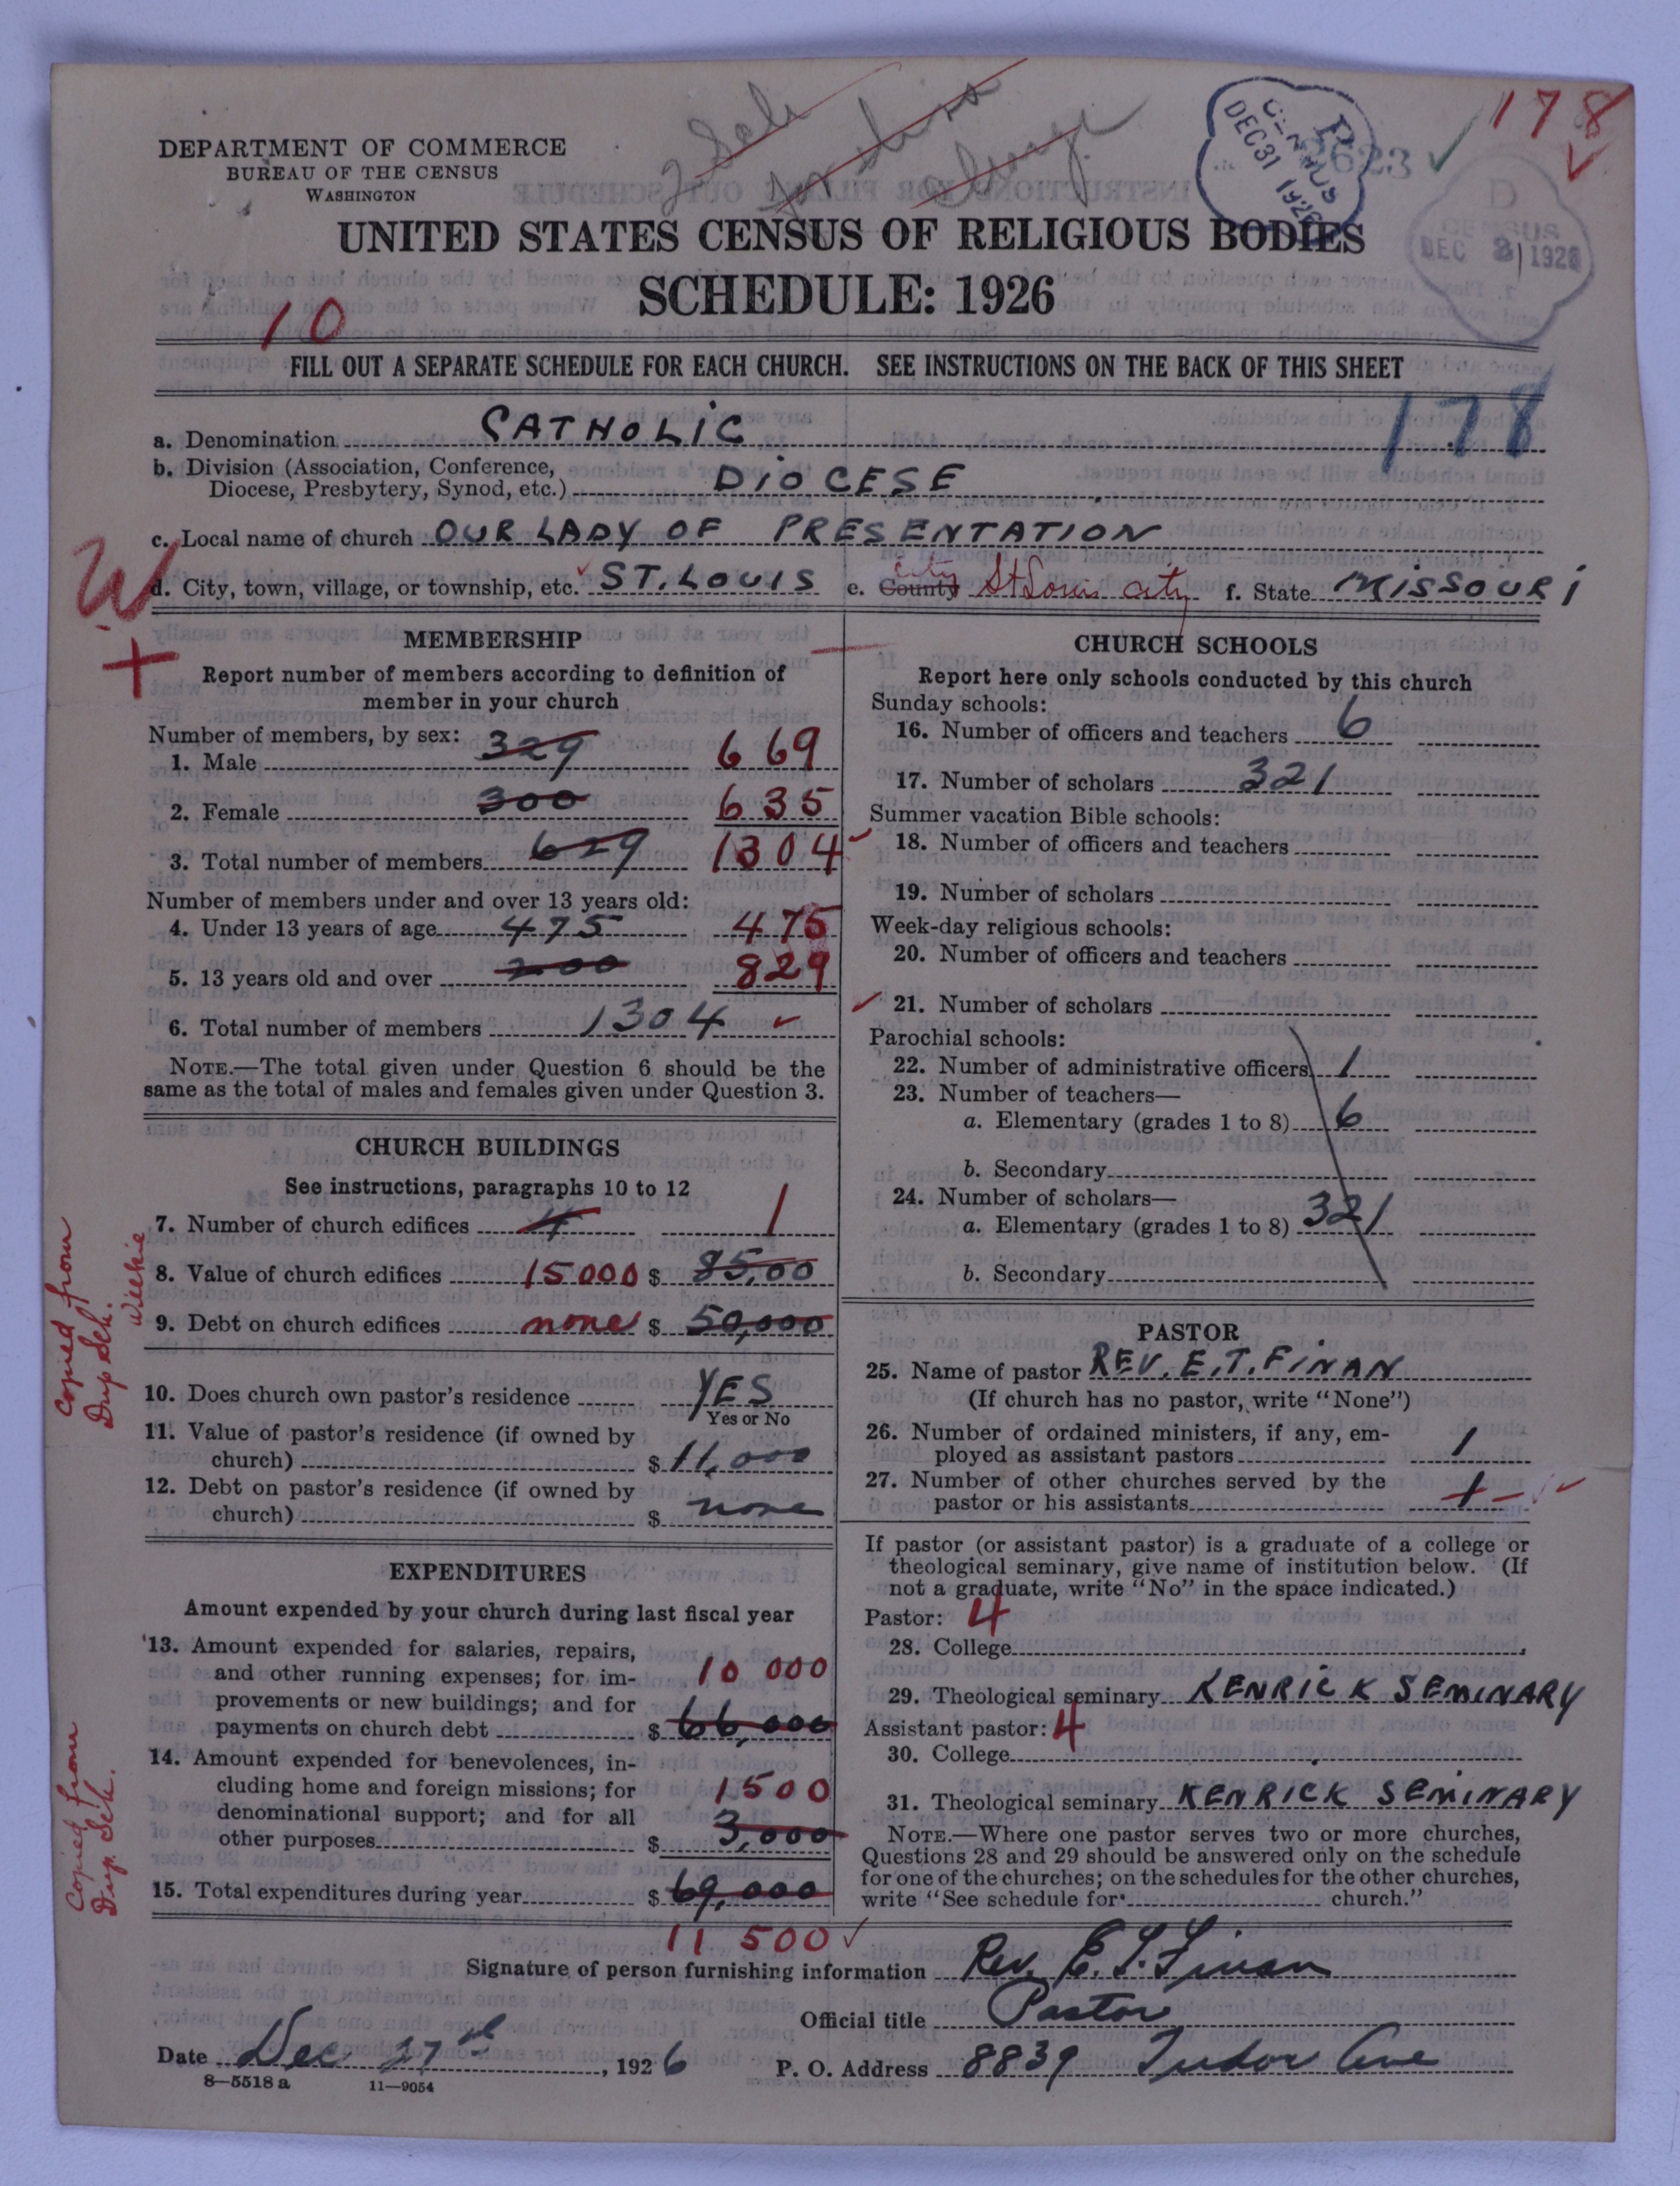 DEPARTMENT OF COMMERCE
BUREAU OF THE CENSUS
WASHINGTON
CENSUS
DEC 31 1926
2623 ✓
178
✓
D
CENSUS
DEC 31 1926
UNITED STATES CENSUS OF RELIGIOUS BODIES
SCHEDULE: 1926
10
FILL OUT A SEPARATE SCHEDULE FOR EACH CHURCH. SEE INSTRUCTIONS ON THE BACK OF THIS SHEET
178
a. Denomination CATHOLIC
b. Division (Association, Conference,
Diocese, Presbytery, Synod, etc.) DIOCESE
c. Local name of church OUR LADY OF PRESENTATION
W
d. City, town, village, or township, etc. ST. LOUIS e. County city St Louis city f. State MISSOURI
+
MEMBERSHIP
Report number of members according to definition of
member in your church
Number of members, by sex:
1. Male 329 669
2. Female 300 635
3. Total number of members 629 1304
Number of members under and over 13 years old:
4. Under 13 years of age 475 475
5. 13 years old and over 200 829
6. Total number of members 1304 ✓
NOTE.—The total given under Question 6 should be the
same as the total of males and females given under Question 3.
CHURCH BUILDINGS
See instructions, paragraphs 10 to 12
7. Number of church edifices 4 1
8. Value of church edifices 15000 $ 85,00
9. Debt on church edifices none $ 50,000
Copied from
Dup Sch.
10. Does church own pastor's residence YES
Yes or No
11. Value of pastor's residence (if owned by
church) $ 11,000
12. Debt on pastor's residence (if owned by
church) $ none
EXPENDITURES
Amount expended by your church during last fiscal year
13. Amount expended for salaries, repairs,
and other running expenses; for im-
provements or new buildings; and for
payments on church debt 10 000 $ 66,000
14. Amount expended for benevolences, in-
cluding home and foreign missions; for
denominational support; and for all
other purposes 1500 $ 3,000
Copied from
Dup. Sch.
15. Total expenditures during year $ 69,000
11 500 ✓
CHURCH SCHOOLS
Report here only schools conducted by this church
Sunday schools:
16. Number of officers and teachers 6
17. Number of scholars 321
Summer vacation Bible schools:
18. Number of officers and teachers
19. Number of scholars
Week-day religious schools:
20. Number of officers and teachers
21. Number of scholars
Parochial schools:
22. Number of administrative officers 1
23. Number of teachers—
a. Elementary (grades 1 to 8) 6
b. Secondary
24. Number of scholars—
a. Elementary (grades 1 to 8) 321
b. Secondary
PASTOR
25. Name of pastor REV. E. T. FINAN
(If church has no pastor, write "None")
26. Number of ordained ministers, if any, em-
ployed as assistant pastors 1
27. Number of other churches served by the
pastor or his assistants 1 –
If pastor (or assistant pastor) is a graduate of a college or
theological seminary, give name of institution below. (If
not a graduate, write "No" in the space indicated.)
Pastor: 4
28. College
29. Theological seminary KENRICK SEMINARY
Assistant pastor: 4
30. College
31. Theological seminary KENRICK SEMINARY
NOTE.—Where one pastor serves two or more churches,
Questions 28 and 29 should be answered only on the schedule
for one of the churches; on the schedules for the other churches,
write "See schedule for church."
Signature of person furnishing information Rev. E. T. Finan
Official title Pastor
Date Dec 27th, 1926 P. O. Address 8839 Tudor Ave
8—5518 a 11—9054